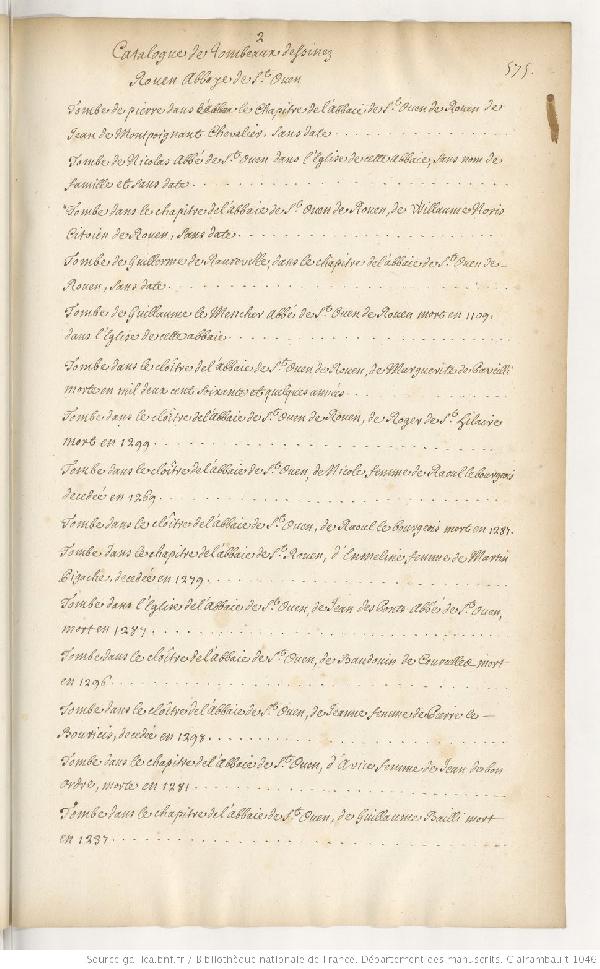 2
Catalogue de Tombeaux dessinez
575.
Rouen Abbaye de St Ouen
Tombe de pierre dans le Chapitre de l'abbaie de St Ouen de Rouen de
Jean de Montpoignant Chevalier, Sans date
Tombe de Nicolas Abbé de St Ouen dans l'Eglise de cette Abbaie, sans nom de
famille et sans date
Tombe dans le chapitre de l'abbaie de St Ouen de Rouen, de Willaume
Citoien de Rouen, Sans date
Tombe de Guillerme de dans le chapitre de l'abbaie de St Ouen de
Rouen, sans date
Tombe de Guillaume le Abbé de St Ouen de Rouen mort en
dans l'Eglise de cette abbaie
Tombe dans le cloître de l'abbaie de St Ouen de Rouen, de Marguerite de
morte en mil deux cent soixante et quelques années
Tombe dans le cloître de l'abbaie de St Ouen de Rouen, de Roger de St Hilaire
mort en 1299
Tombe dans le cloître de l'abbaie de St Ouen, de Nicole femme de Raoul le bourgois
decedée en 1269
Tombe dans le cloître de l'abbaie de St Ouen, de Raoul le bourgeois mort en 1287.
Tombe dans le chapitre de l'abbaie de St Rouen, d'Emmeline, femme de Martin
decedée en 1279
Tombe dans l'Eglise de l'abbaie de St Ouen, de Jean des Ponts Abbé de St Ouen,
mort en 1287
Tombe dans le cloître de l'abbaie de St Ouen, de Baudouin de mort
en 1296
Tombe dans le cloître de l'Abbaie de St Ouen, de Jeanne femme de Pierre le
decedée en 1298
Tombe dans le chapitre de l'abbaie de St Ouen, d'Avice femme de Jean de bon
ordre, morte en 1281
Tombe dans le chapitre de l'abbaie de St Ouen, de Guillaume Bailli mort
en 1287
Source gallica.bnf.fr / Bibliothèque nationale de France. Département des manuscrits. Clairambault 1046